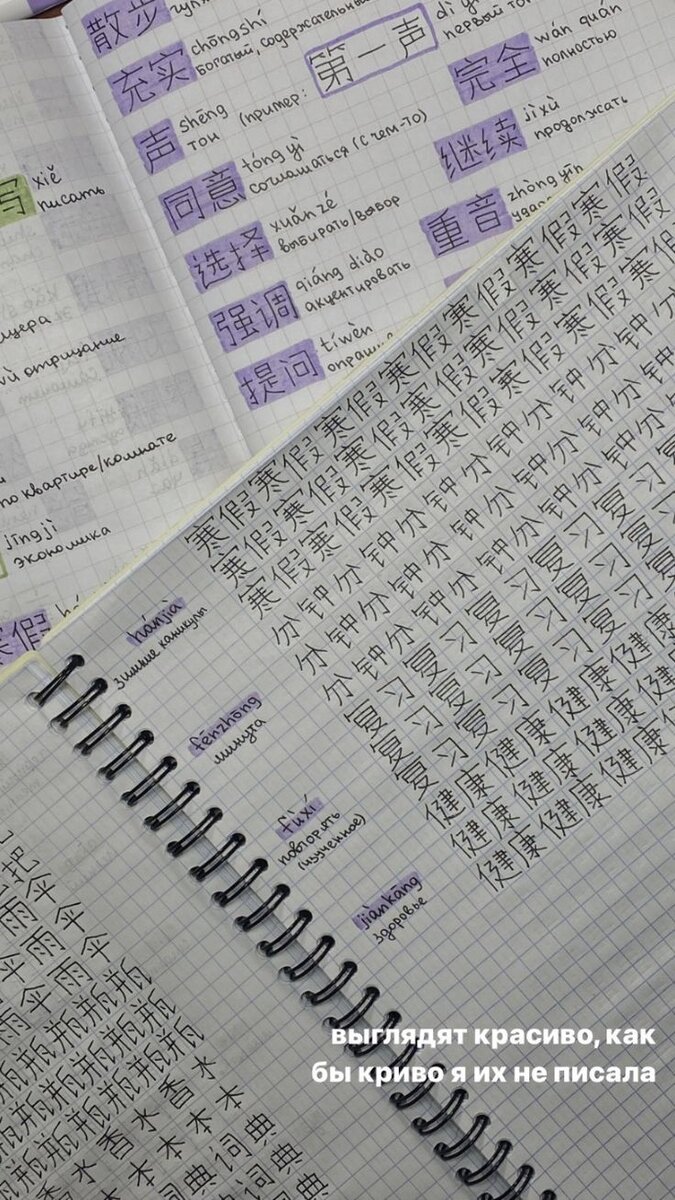 散步
充实
chōngshí
богатый, содержательный
声
shēng
тон (пример:
第一声
первый тон
同意
tóng yì
соглашаться (с чем-то)
选择
xuǎn zé
выбирать/выбор
强调
qiáng diào
акцентировать
提问
tíwèn
完全
wán quán
полностью
继续
jìxù
продолжать
重音
zhòng yīn
写
xiě
писать
отрицание
по квартире/комнате
jīngjì
экономика
寒假
hánjià
зимние каникулы
寒假寒假寒假寒假寒假寒假寒假
寒假寒假寒假寒假寒假寒假寒假
寒假寒假寒假寒假寒假寒假寒
fēnzhōng
минута
分钟分钟分钟分钟分钟分钟分
分钟分钟分钟分钟分钟分钟
分钟分钟分钟分钟分钟分钟
fùxí
повторять
(изученное)
复习复习复习复习复习
复习复习复习复习复习
复习复习复习复习
jiànkāng
здоровье
健康健康健康健康
健康健康健康健康
健康健康健康
把
雨伞
伞雨伞
伞雨伞雨伞
瓶瓶瓶瓶瓶
瓶瓶瓶瓶瓶
瓶瓶瓶瓶瓶
香水香水
水香水
本本本本本
词典词典
词典
выглядят красиво, как
бы криво я их не писала